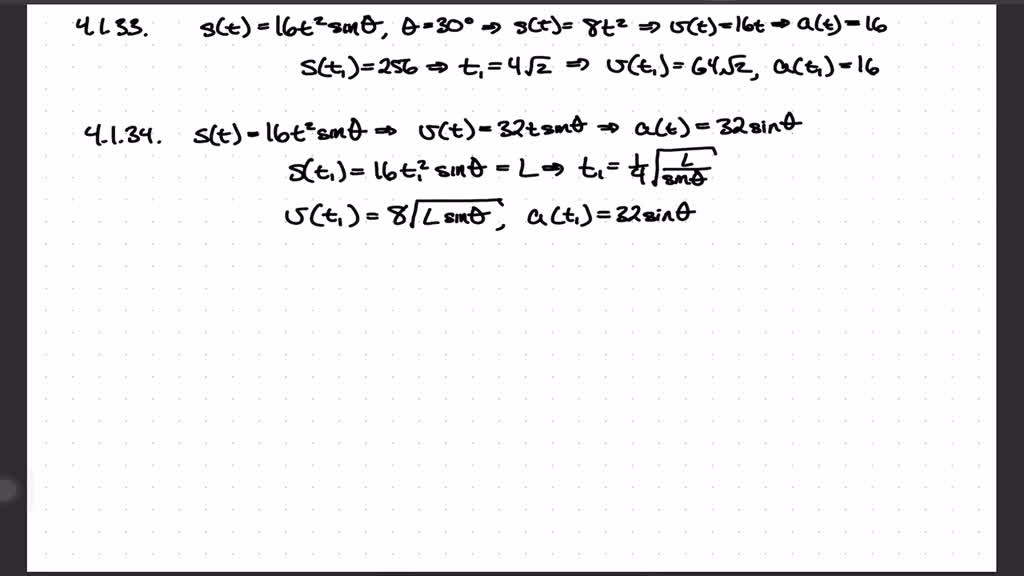 4.1.33. s(t)=16t²sinθ, θ=30° ⇒ s(t)=8t² ⇒ v(t)=16t ⇒ a(t)=16
s(t₁)=256 ⇒ t₁=4√2 ⇒ v(t₁)=64√2, a(t₁)=16
4.1.34. s(t)=16t²sinθ ⇒ v(t)=32tsinθ ⇒ a(t)=32sinθ
s(t₁)=16t₁²sinθ=L ⇒ t₁=¼√(L/sinθ)
v(t₁)=8√(Lsinθ), a(t₁)=32sinθ